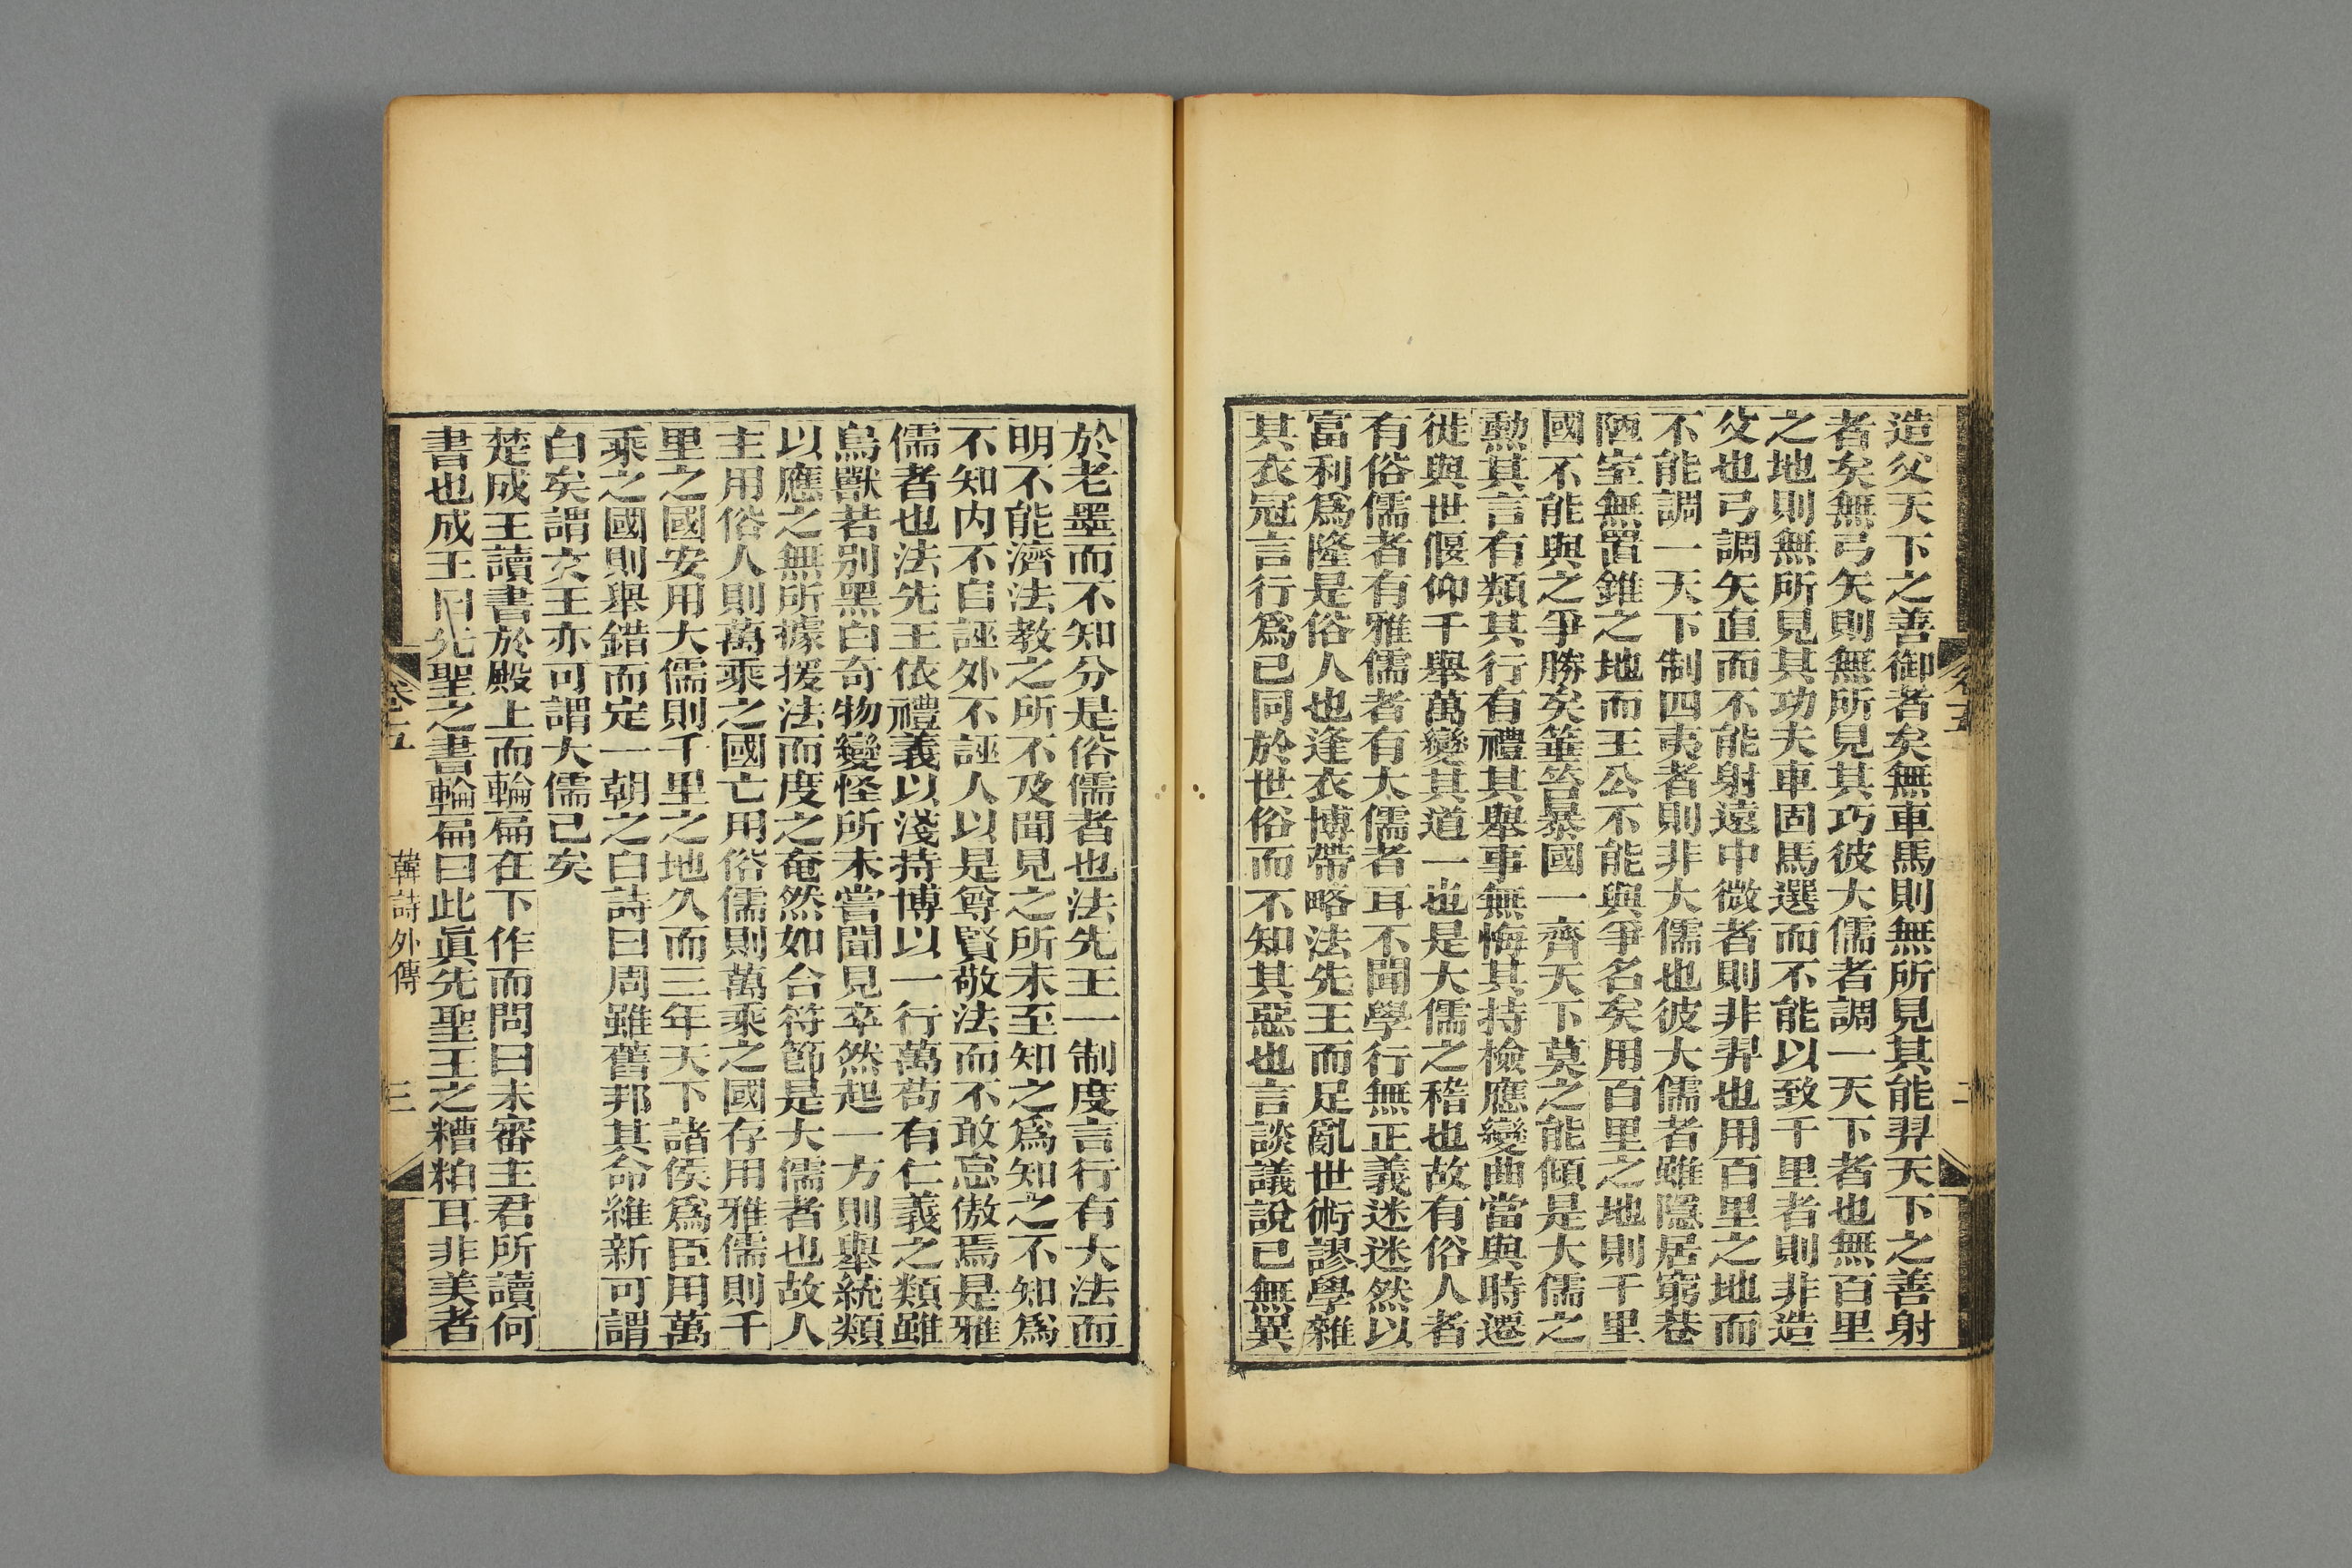 造父天下之善御者矣無車馬則無所見其能羿天下之善射
者矣無弓矢則無所見其巧彼大儒者調一天下者也無百里
之地則無所見其功夫車固馬選而不能以致千里者則非造
父也弓調矢直而不能射遠中微者則非羿也用百里之地而
不能調一天下制四夷者則非大儒也彼大儒者雖隱居窮巷
陋室無置錐之地而王公不能與爭名矣用百里之地則千里
國不能與之爭勝矣箠笞暴國一齊天下莫之能傾是大儒之
勲其言有類其行有禮其舉事無悔其持檢應變曲當與時遷
徙與世偃仰千舉萬變其道一也是大儒之稽也故有俗人者
有俗儒者有雅儒者有大儒者耳不聞學行無正義迷迷然以
富利爲隆是俗人也逢衣博帶略法先王而足亂世術謬學雜
其衣冠言行爲已同於世俗而不知其惡也言談議說已無異
卷五
二
於老墨而不知分是俗儒者也法先王一制度言行有大法而
明不能濟法教之所不及聞見之所未至知之爲知之不知爲
不知内不自誣外不誣人以是尊賢敬法而不敢怠傲焉是雅
儒者也法先王依禮義以淺持博以一行萬苟有仁義之類雖
鳥獸若别黑白奇物變怪所未嘗聞見卒然起一方則舉統類
以應之無所據援法而度之奄然如合符節是大儒者也故人
主用俗人則萬乘之國亡用俗儒則萬乘之國存用雅儒則千
里之國安用大儒則千里之地久而三年天下諸侯爲臣用萬
乘之國則舉錯而定一朝之白詩曰周雖舊邦其命維新可謂
白矣謂文王亦可謂大儒已矣
楚成王讀書於殿上而輪扁在下作而問曰未審主君所讀何
書也成王曰先聖之書輪扁曰此眞先聖王之糟粕耳非美者
卷五
韓詩外傳
三